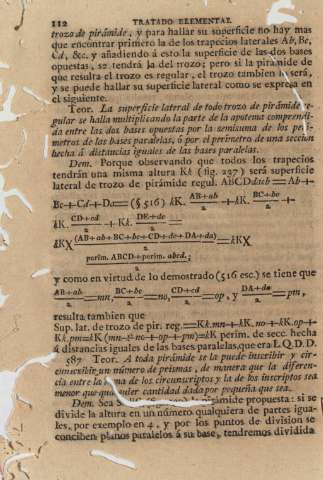 112 TRATADO ELEMENTAL
trozo de pirámide, y para hallar su superficie no hay mas
que encontrar primero la de los trapecios laterales Ab, Be,
Cd, &c. y añadiendo á esto la superficie de las dos bases
opuestas, se tendrá la del trozo; pero si la pirámide de
que resulta el trozo es regular, el trozo tambien lo será,
y se puede hallar su superficie lateral como se expresa en
el siguiente.
Teor. La superficie lateral de todo trozo de pirámide re-
gular se halla multiplicando la parte de la apotema comprendi-
da entre las dos bases opuestas por la semisuma de los perí-
metros de las bases paralelas, ó por el perímetro de una seccion
hecha á distancias iguales de las bases paralelas.
Dem. Porque observando que todos los trapecios
tendrán una misma altura Kk (fig. 237) será superficie
lateral de trozo de pirámide regul. ABCDdacb = Ab+
Bc+Cd+Da= (§ 516) kK. AB+ab/2 +kK. BC+bc/2 +
kK. CD+cd/2 + Kk. DE+de/2 =
kK×(AB+ab+BC+bc+CD+cd+DA+da)/2 =kK×
perim. ABCD+perim. abcd./2;
y como en virtud de lo demostrado (516 esc.) se tiene que
AB+ab/2 =mn, BC+bc/2 =no, CD+cd/2 =op, y DA+da/2 =pm,
resulta tambien que
Sup. lat. de trozo de pir. reg.=Kk.mn+kK.no+kK.op+
Kk.pm=kK(mn+no+op+pm)=kK perim. de secc. hecha
á distancias iguales de las bases paralelas, que era L.Q.D.D.
587 Teor. A toda pirámide se la puede inscribir y cir-
cunscribir un número de prismas, de manera que la diferen-
cia entre la suma de los circunscriptos y la de los inscriptos sea
menor que qualquier cantidad dada por pequeña que sea.
Dem. Sea pirámide propuesta: si se
divide la altura en un número qualquiera de partes igua-
les, por exemplo en 4, y por los puntos de division se
conciben planos paralelos á su base, tendremos dividida